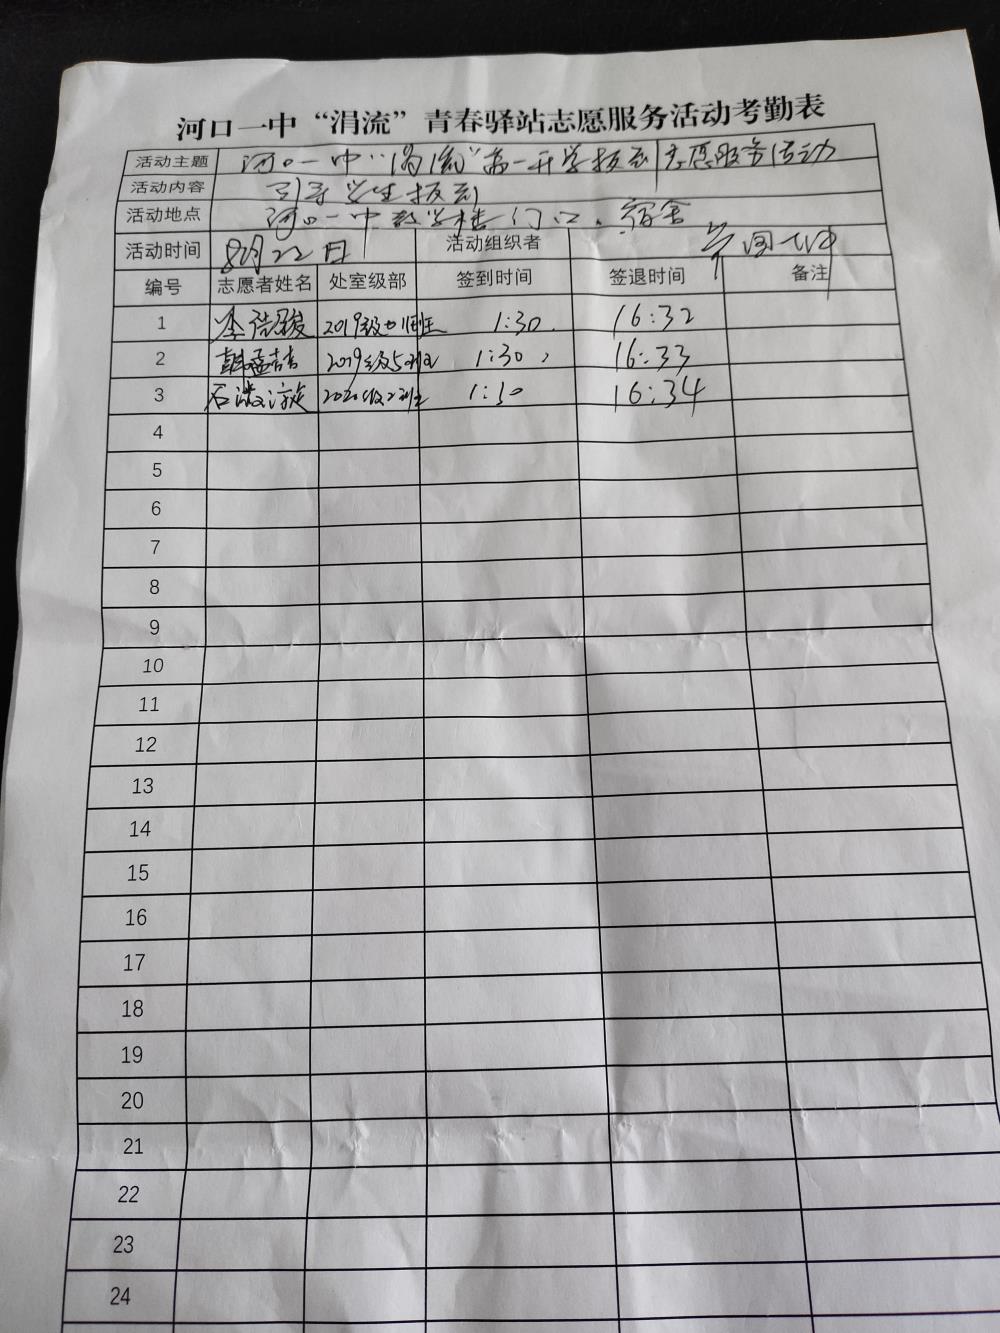 河口一中“涓流”青春驿站志愿服务活动考勤表
活动主题 河口一中“涓流”高一开学报到志愿服务活动
活动内容 引导学生报到
活动地点 河口一中教学楼门口、宿舍
活动时间 8月22日 活动组织者
编号 志愿者姓名 处室级部 签到时间 签退时间 备注
1 2019级 1:30 16:32
2 2019级5班 1:30 16:33
3 石 2020级2班 1:30 16:34
4
5
6
7
8
9
10
11
12
13
14
15
16
17
18
19
20
21
22
23
24